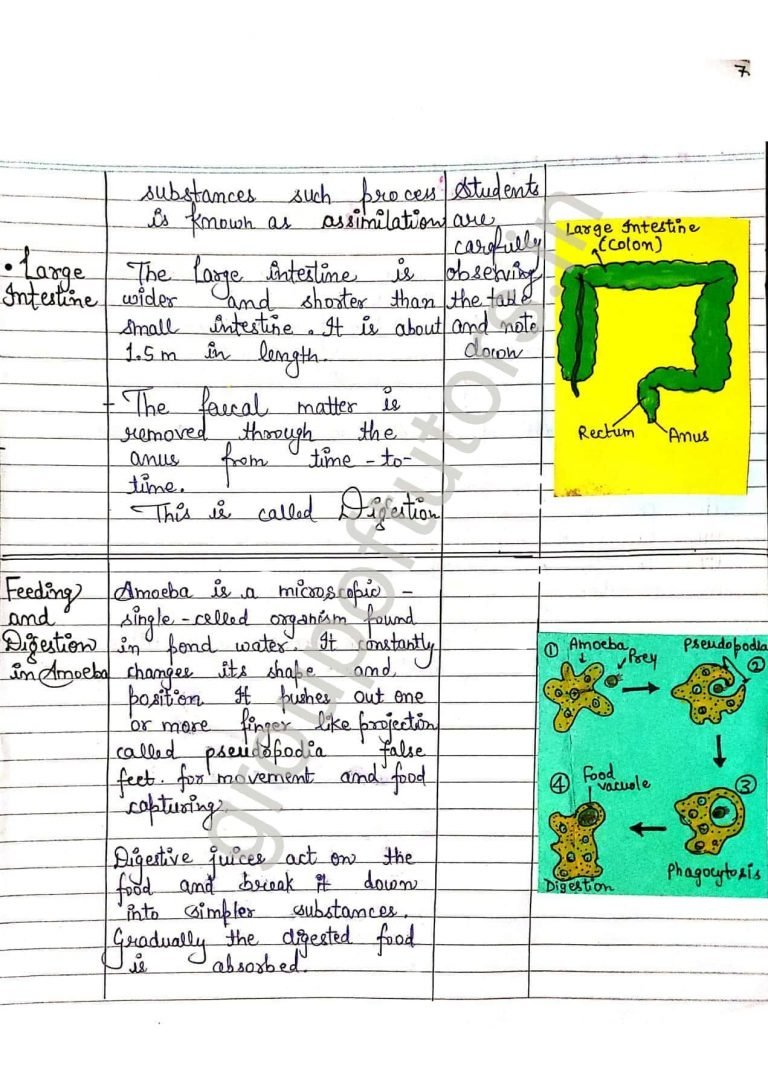 7
substances such process
is known as assimilation
Students
are
carefully
observing
the table
and note
down
• Large
Intestine
The Large intestine is
wider and shorter than
small intestine. It is about
1.5 m in length.
- The faecal matter is
removed through the
anus from time-to-
time.
This is called Digestion
Large Intestine
(Colon)
Rectum
Anus
Feeding
and
Digestion
in Amoeba
Amoeba is a microscopic -
single-celled organism found
in pond water. It constantly
changes its shape and
position It pushes out one
or more finger like projection
called pseudopodia false
feet. for movement and food
capturing.
Digestive juices act on the
food and break it down
into simpler substances.
Gradually the digested food
is absorbed.
① Amoeba
Prey
Pseudopodia
②
③
Phagocytosis
④ Food
vacuole
Digestion
groupoftutors.in